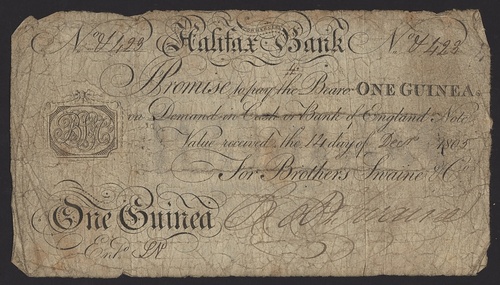 No 4,423 Halifax Bank No 4,423
I Promise to pay the Bearer ONE GUINEA
on Demand in Cash or Bank of England Note
Value received the 14 day of Decr 1805
For Brothers Swaine & Co
One Guinea
Entd